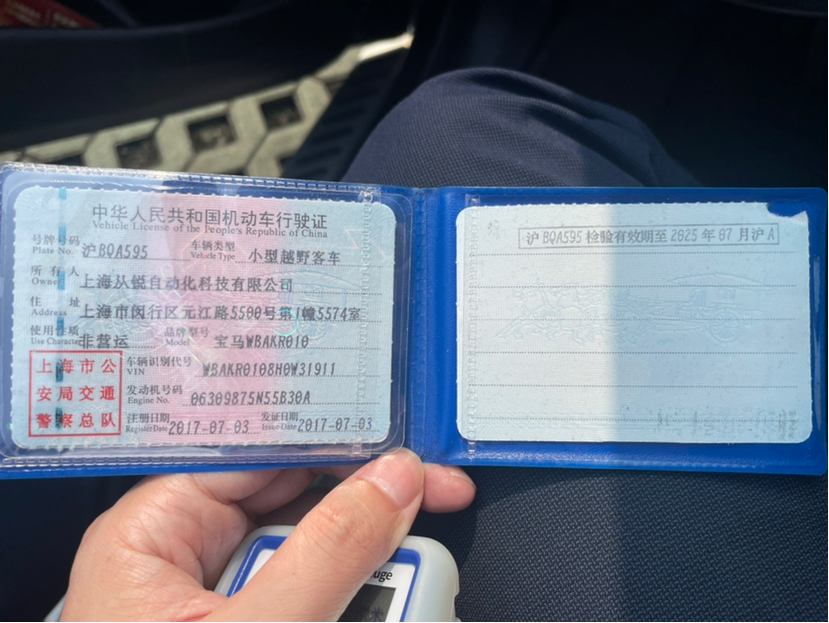 中华人民共和国机动车行驶证
Vehicle License of the People's Republic of China
号牌号码 沪BQA595 车辆类型 小型越野客车
Plate No. Vehicle Type
所有人 上海从锐自动化科技有限公司
Owner
住址 上海市闵行区元江路5500号第1幢5574室
Address
使用性质 非营运 品牌型号 宝马WBAKR010
Use Character Model
上海市公
安局交通
警察总队
车辆识别代号 WBAKR0108H0W31911
VIN
发动机号码 06309875N55B30A
Engine No.
注册日期 2017-07-03 发证日期 2017-07-03
Register Date Issue Date
沪BQA595 检验有效期至 2025年07月沪A
uge